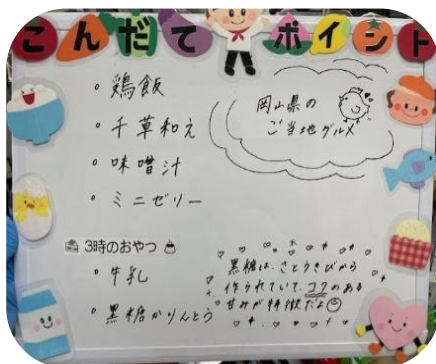 こんだてポイント
・鶏飯
・千草和え
・味噌汁
・ミニゼリー
岡山県の
ご当地グルメ
3時のおやつ
・牛乳
・黒糖かりんとう
黒糖は、さとうきびから
作られていて、コクのある
甘みが特徴だよ